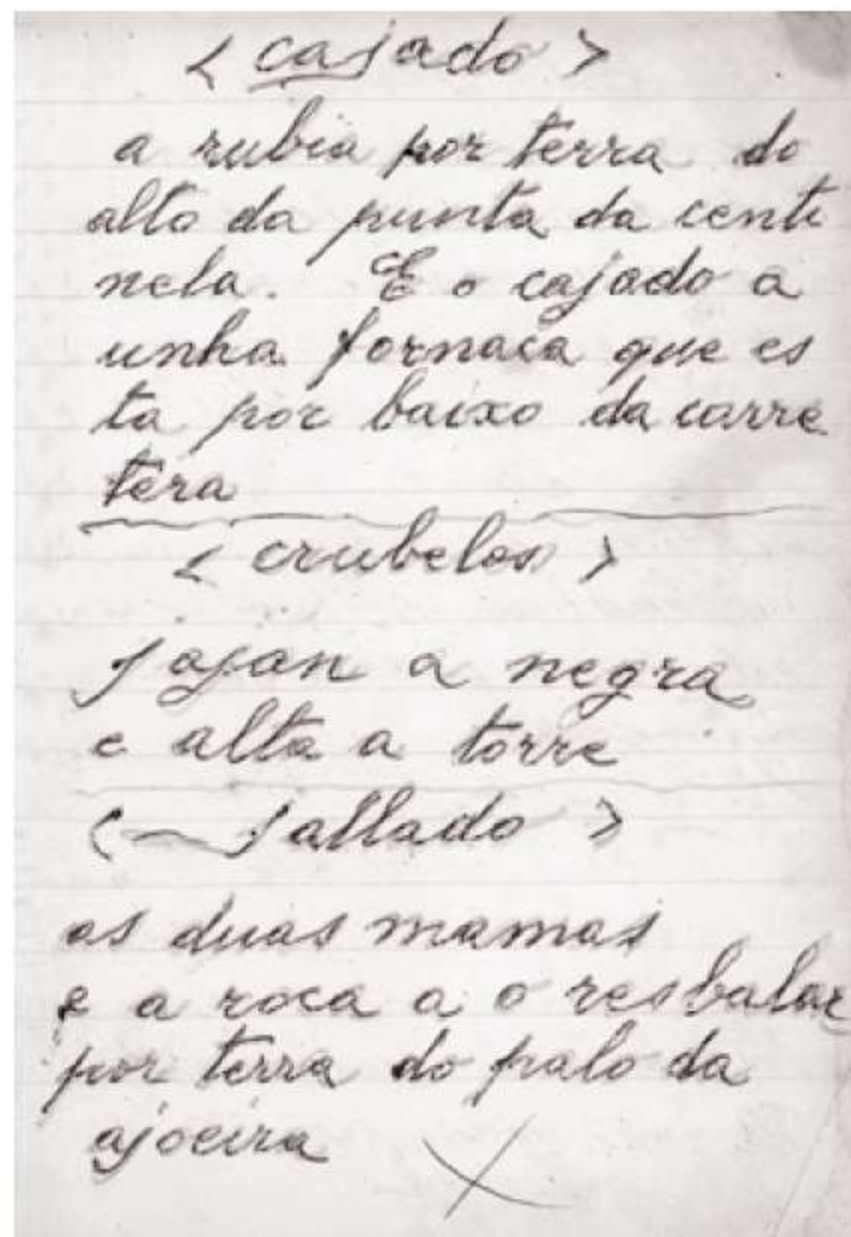 < cajado >
a rubia por terra do
alto da punta da centi
nela. E o cajado a
unha fornaca que es
ta por baixo da carre
tera
< crubelos >
sajan a negra
e alta a torre
< sallado >
as duas mamas
e a roca a o resbalar
por terra do palo da
ajoeira